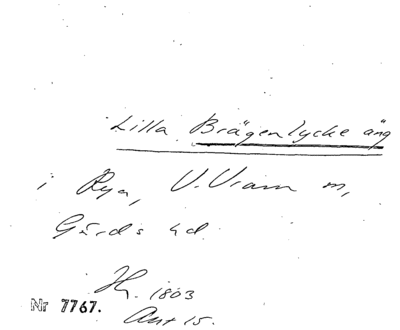 Lilla Brägenlycke äng
i Rya, V. Vram m,
Gärds hd.
Hh. 1803
Ant 15.
Nr 7767.